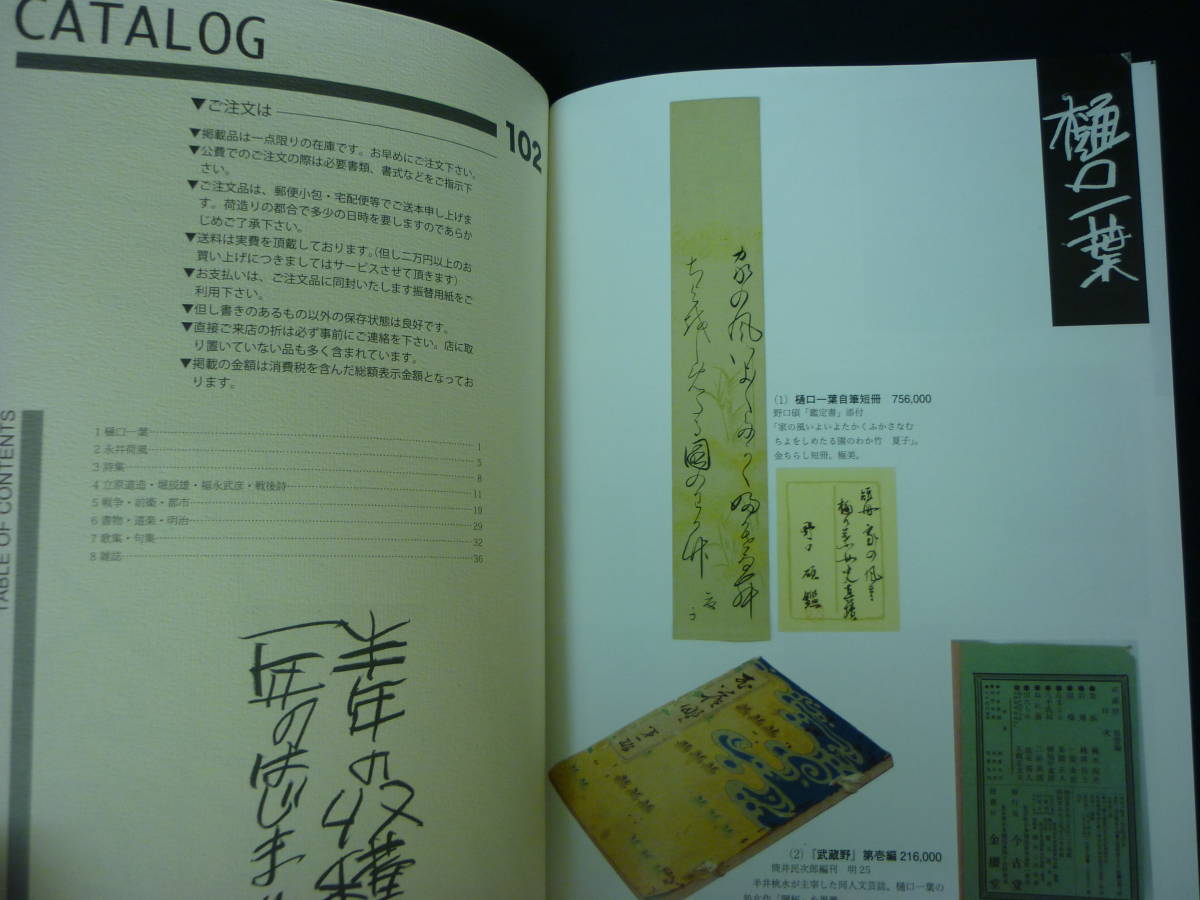 CATALOG
102
▼ご注文は
▼掲載品は一点限りの在庫です。お早めにご注文下さい。
▼公費でのご注文の際は必要書類、書式などをご指示下
さい。
▼ご注文品は、郵便小包・宅配便等でご送本申し上げま
す。荷造りの都合で多少の日時を要しますのであらか
じめご了承下さい。
▼送料は実費を頂戴しております。(但し二万円以上のお
買い上げにつきましてはサービスさせて頂きます)
▼お支払いは、ご注文品に同封いたします振替用紙をご
利用下さい。
▼但し書きのあるもの以外の保存状態は良好です。
▼直接ご来店の折は必ず事前にご連絡を下さい。店に取
り置いていない品も多く含まれています。
▼掲載の金額は消費税を含んだ総額表示金額となってお
ります。
TABLE OF CONTENTS
1 樋口一葉 1
2 永井荷風 5
3 詩集 8
4 立原道造・堀辰雄・福永武彦・戦後詩 11
5 戦争・前衛・都市 19
6 書物・道楽・明治 29
7 歌集・句集 32
8 雑誌 36
半年の収穫
一年のはじま
樋口一葉
(1) 樋口一葉自筆短冊 756,000
野口碩「鑑定書」添付
「家の風いよいよたかくふかさなむ
ちよをしめたる園のわか竹 夏子」。
金ちらし短冊。極美。
野口 碩 鑑
(2) 『武蔵野』第壱編 216,000
筒井民次郎編刊 明25
半井桃水が主宰した同人文芸誌。樋口一葉の
今古堂
金櫻堂